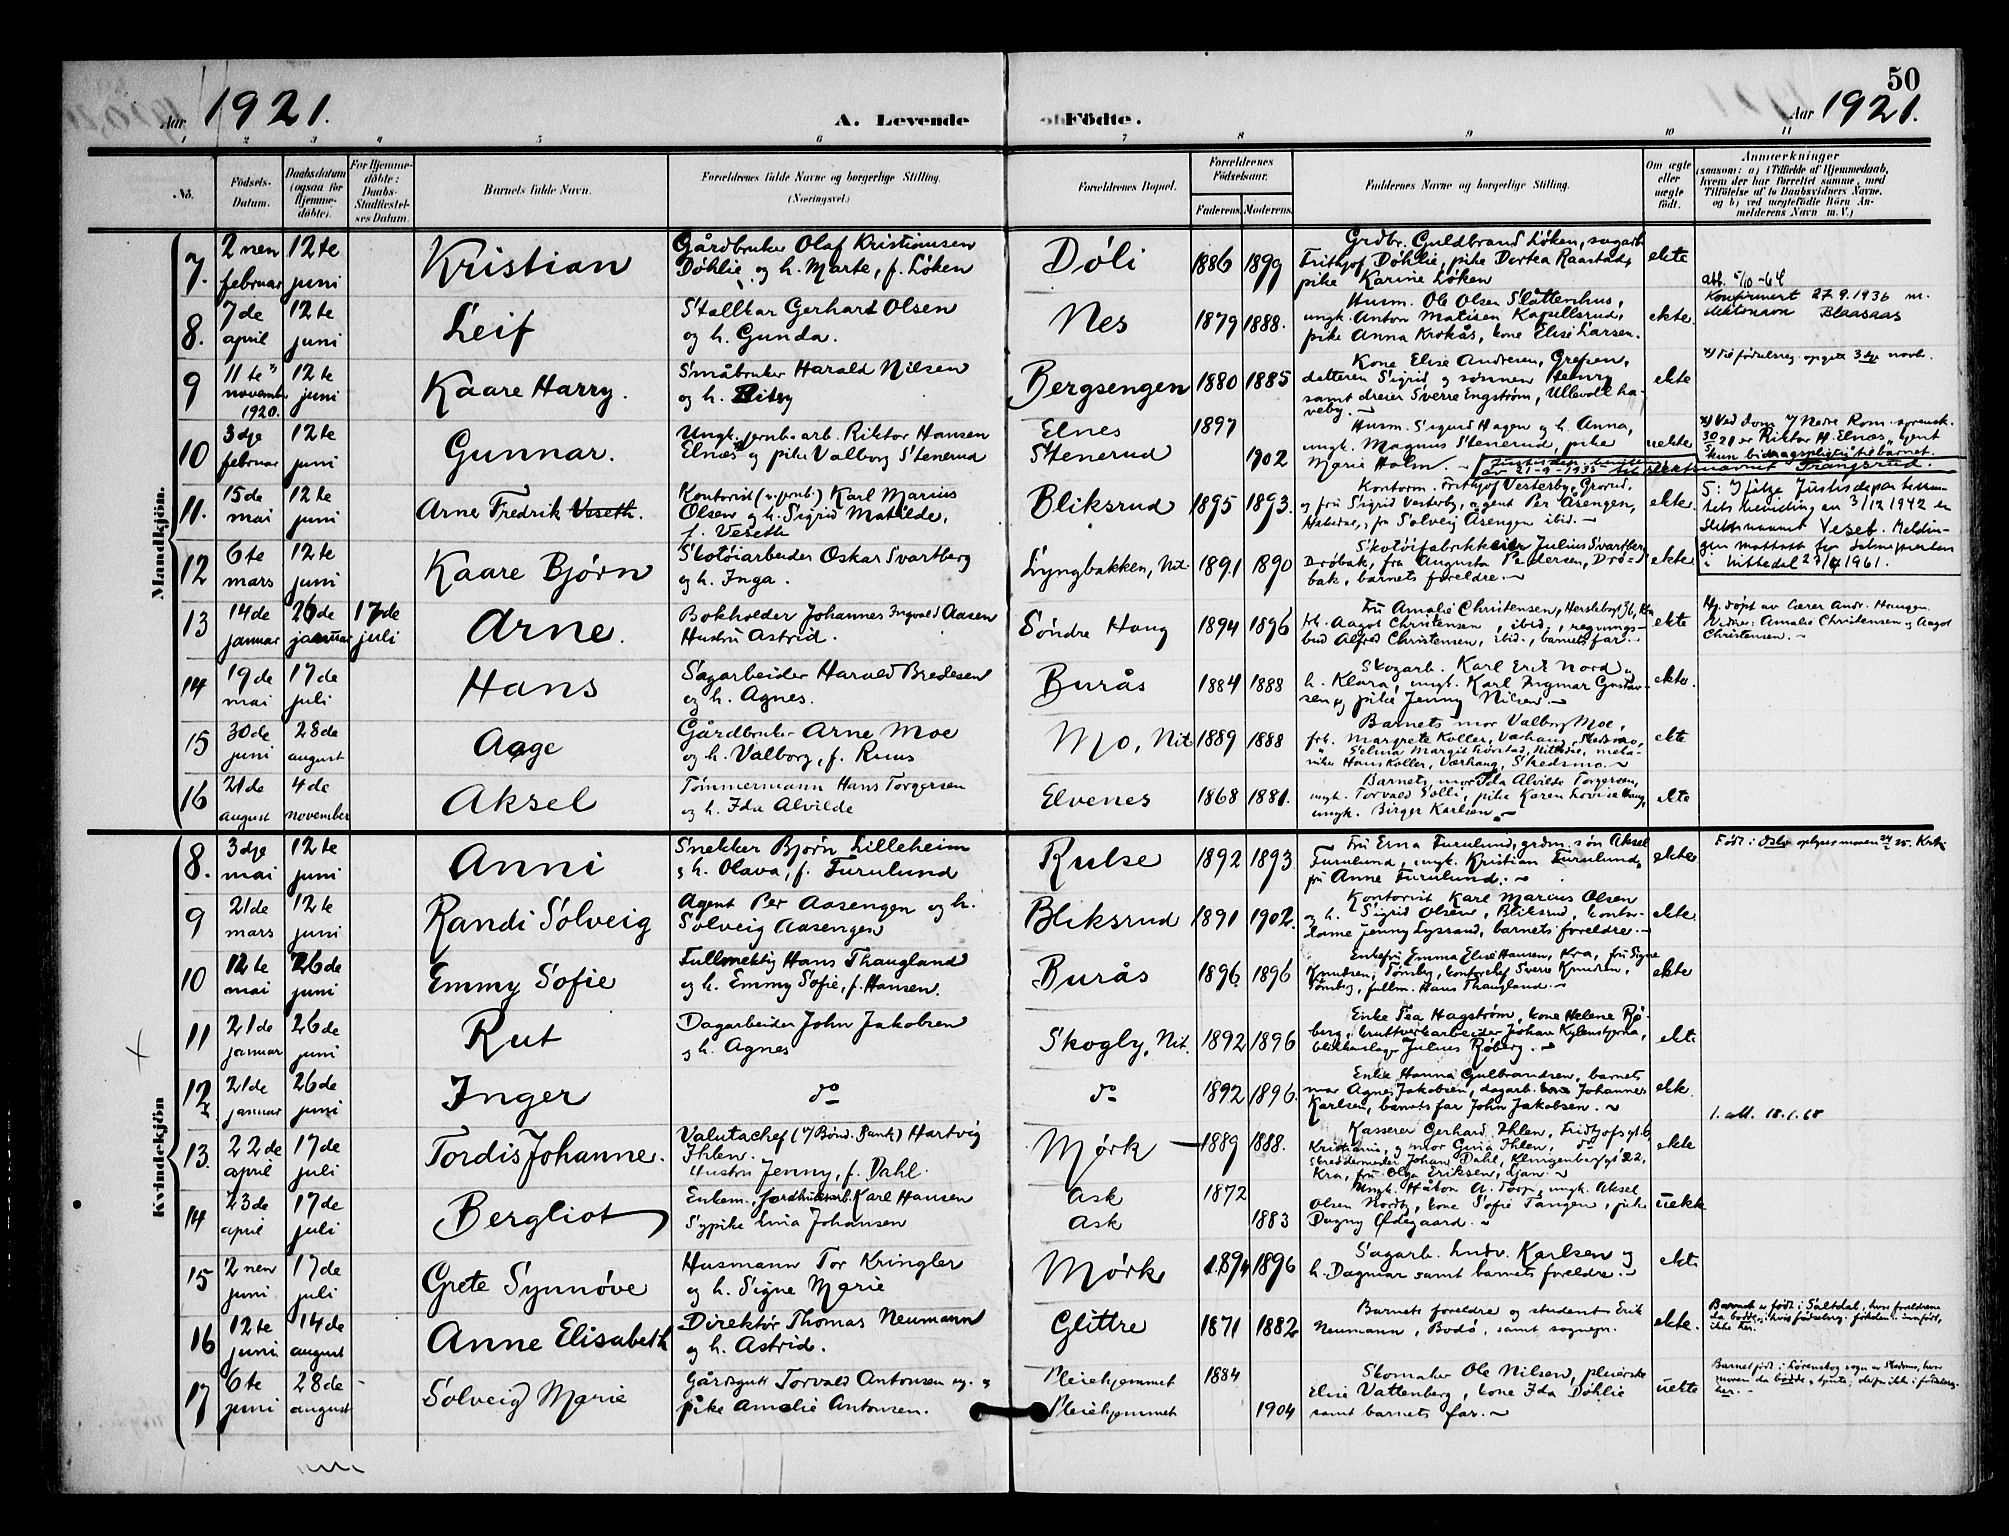 50
Aar 1921.
A. Levende
Födte.
Aar 1921.
1 2 3 4 5 6 7 8 9 10 11
No.
Födsels-
Datum.
Daabsdatum
(ogsaa for
Hjemme-
døbte).
For Hjemme-
döbte:
Daabs-
Stadfæstel-
ses Datum.
Barnets fulde Navn.
Forældrenes fulde Navne og borgerlige Stilling.
(Næringsvei.)
Forældrenes Bopæl.
Forældrenes
Födselsaar.
Faderens. Moderens.
Faddernes Navne og borgerlige Stilling.
Om ægte
eller
uægte
født.
Anmærkninger
(saasom: a) i Tilfælde af Hjemmedaab,
hvem der har forrettet samme, med
Tilföielse af to Daabsvidners Navne,
og b) ved uægtefödte Börn An-
melderens Navn m. V.)
Mandkjön.
7.
2nen
februar
12te
juni
Kristian
Gårdbruker Olaf Kristiansen
Döhlie og h. Marte, f. Löken
Döli
1886 1899
Grdbr. Guldbrand Löken, sagarb.
Frithjof Döhlie, pike Dortea Raastad,
pike Karine Löken
ekte
att. 5/10-64
8.
7de
april
12te
juni
Leif
Stallkar Gerhard Olsen
og h. Gunda.
Nes
1879 1888.
Husm. Ole Olsen Slåttenhus,
ungk. Anton Matisen Kapellsrud,
pike Anna Krokås, kone Elise Larsen.
ekte.
Konfirmert 27.9.1936 m.
slektsnavn Blaasaas
9
11te
novemb.
1920.
12te
juni
Kaare Harry.
Småbruker Harald Nilsen
og h.
Bergsengen
1880 1885
Kone Elise Andresen, Grefsen,
datteren Sigrid og sönnen Henry
samt dreier Sverre Engström, Ullevoll ha-
veby.
ekte
10
3dje
februar
12te
juni
Gunnar.
Ungk. jernb. arb. Riktor Hansen
Elnæs og pike Valborg Stenerud
Elnes
Stenerud
1897
1902
Husm. Sigurd Hagen og h. Anna,
ungk. Magnus Stenerud, pike
Marie Holm.
uekte
av 21-9-1935 slektsnavnet Trangsrud.
11.
15de
mai
12te
juni
Arne Fredrik Veseth.
Kontorist (v. jernb.) Karl Marius
Olsen og h. Sigrid Matilde,
f. Veseth
Bliksrud
1895 1893.
Kontorm. Frithjof Vesterby, Grorud,
og fru Sigrid Vesterby, agent Per Åsengen,
fru Solveig Åsengen ibid.
ekte.
5: Ifölge Justisdepartemen-
tets melding av 3/12 1942 er
slektsnavnet Veset.
12
6te
mars
12te
juni
Kaare Björn
Skotöiarbeider Oskar Svartberg
og h. Inga.
Lyngbakken, Nit.
1891 1890
Skotöifabrikkeier Julius Svartberg
Dröbak, fru Augusta Pedersen, Drö-
bak, barnets foreldre.
ekte
13
14de
januar
26de
januar
17de
juli
Arne.
Bokholder Johannes Ingvald Aasen
Hustru Astrid.
Söndre Haug
1894 1896
Fru Amalie Christensen,
Aagot Christensen, ibid.,
bud Alfred Christensen, ibid., barnets far.
ekte
Hj. döpt av Lærer Andr. Haugen.
Vidner: Amalie Christensen og Aagot
Christensen.
14
19de
mai
17de
juli
Hans
Sagarbeider Harald Bredesen
og h. Agnes.
Burås
1884 1888
Skogarb. Karl Erik Nord og
h. Klara, ungk. Karl Ingmar Gustav-
sen og pike Jenny Nilsen.
ekte.
15
30de
juni
28de
august
Aage
Gårdbruker Arne Moe
og h. Valborg, f. Ruus
Mo, Nit
1889 1888
Barnets mor Valborg Moe,
frk. Margrete Koller, Værhaug, Skedsmo,
niker Hans Koller, Værhaug, Skedsmo.
ekte
16
21de
august
4de
november
Aksel
Tömmermann Hans Torgersen
og h. Ida Alvilde
Elvenes
1868 1881.
Barnets mor Ida Alvilde Torgersen,
ungk. Torvald Solli, pike Karen Lovise Haug,
ungk. Birger Karlsen.
ekte
Kvindekjön
8.
3dje
mai
12te
juni
Anni
Snekker Björn Lilleheim
og h. Olava, f. Furulund
Rulse
1892 1893.
Fru Erna Furulund, grdm. sön Aksel
Furulund, ungk. Kristian Furulund,
fru Anne Furulund.
ekte
9
21de
mars
12te
juni
Randi Solveig
Agent Per Aasengen og h.
Solveig Aasengen
Bliksrud
1891 1902.
Kontorist Karl Marius Olsen
og h. Sigrid Olsen, Bliksrud, kontor-
dame Jenny Lysrand, barnets foreldre.
ekte
10
12te
mai
26de
juni
Emmy Sofie
Fullmektig Hans Thaugland
og h. Emmy Sofie, f. Hansen.
Burås
1896 1896
Enkefru Emma Elise Hansen, Kra, fru Signe
Knudsen, kontorchef Sverre Knudsen,
fullm. Hans Thaugland.
ekte
11
21de
januar
26de
juni
Rut
Dagarbeider John Jakobsen
og h. Agnes
Skogly, Nit.
1892 1896
Enke Tea Hagström, kone Helene Rö-
berg, bruttverkarbeider Johan
blikkenslager Julius Röberg.
ekte
12
21de
januar
26de
juni
Inger
do
do
1892 1896.
Enke Hanna Gulbrandsen, barnets
mor Agnes Jakobsen, dagarb. Johannes
Karlsen, barnets far John Jakobsen.
ekte.
1. att. 18.1.68
13.
22de
april
17de
juli
Tordis Johanne.
Valutachef (v/ Bönd. Bank) Hartvig
Ihlen.
Hustru Jenny, f. Dahl.
Mörk
1889 1888.
Kasserer Gerhard Ihlen, Fridtjofsgt. 6,
Kristiania, og mor Gina Ihlen, do
skreddermester Johan Dahl, Klingenberggt. 22,
Kra, fru Olga Eriksen, Ljan.
ekte
14
23de
april
17de
juli
Bergliot
Enkem. jordbruksarb. Karl Hansen
Sypike Lina Johansen
Ask
Ask
1872
1883
Ungk. Håkon A. Torp, ungk. Aksel
Olsen Nordby, kone Sofie Tangen, pike
Dagny Ödegaard.
uekte
15
2nen
juni
17de
juli
Grete Synnöve
Husmann Tor Kringler
og h. Signe Marie
Mörk
1894 1896
Sagarb. Ludv. Karlsen og
h. Dagmar samt barnets foreldre.
ekte
16
12te
juni
14de
august
Anne Elisabeth
Direktör Thomas Neumann
og h. Astrid.
Glittre
1871 1882
Barnets foreldre og student Erik
Neumann, Bodö, samt sognepr.
ekte.
Barnet er födt i Saltdal, hvor foreldrene
da bodde, i hvis födselreg. födselen er innfört,
ikke her.
17
6te
juni
28de
august
Solveig Marie
Gårdsgutt Torvald Antonsen og
pike Amalie Antonsen.
Pleiehjemmet
Pleiehjemmet
1884
1904
Skomaker Ole Nilsen, pleierske
Elise Vattenberg, kone Ida Döhlie
samt barnets far.
uekte
Barnet födt i Lörenskog sogn av Skedsmo, hvor
moren da bodde og tjente; derfor ikke i födselreg.
her.